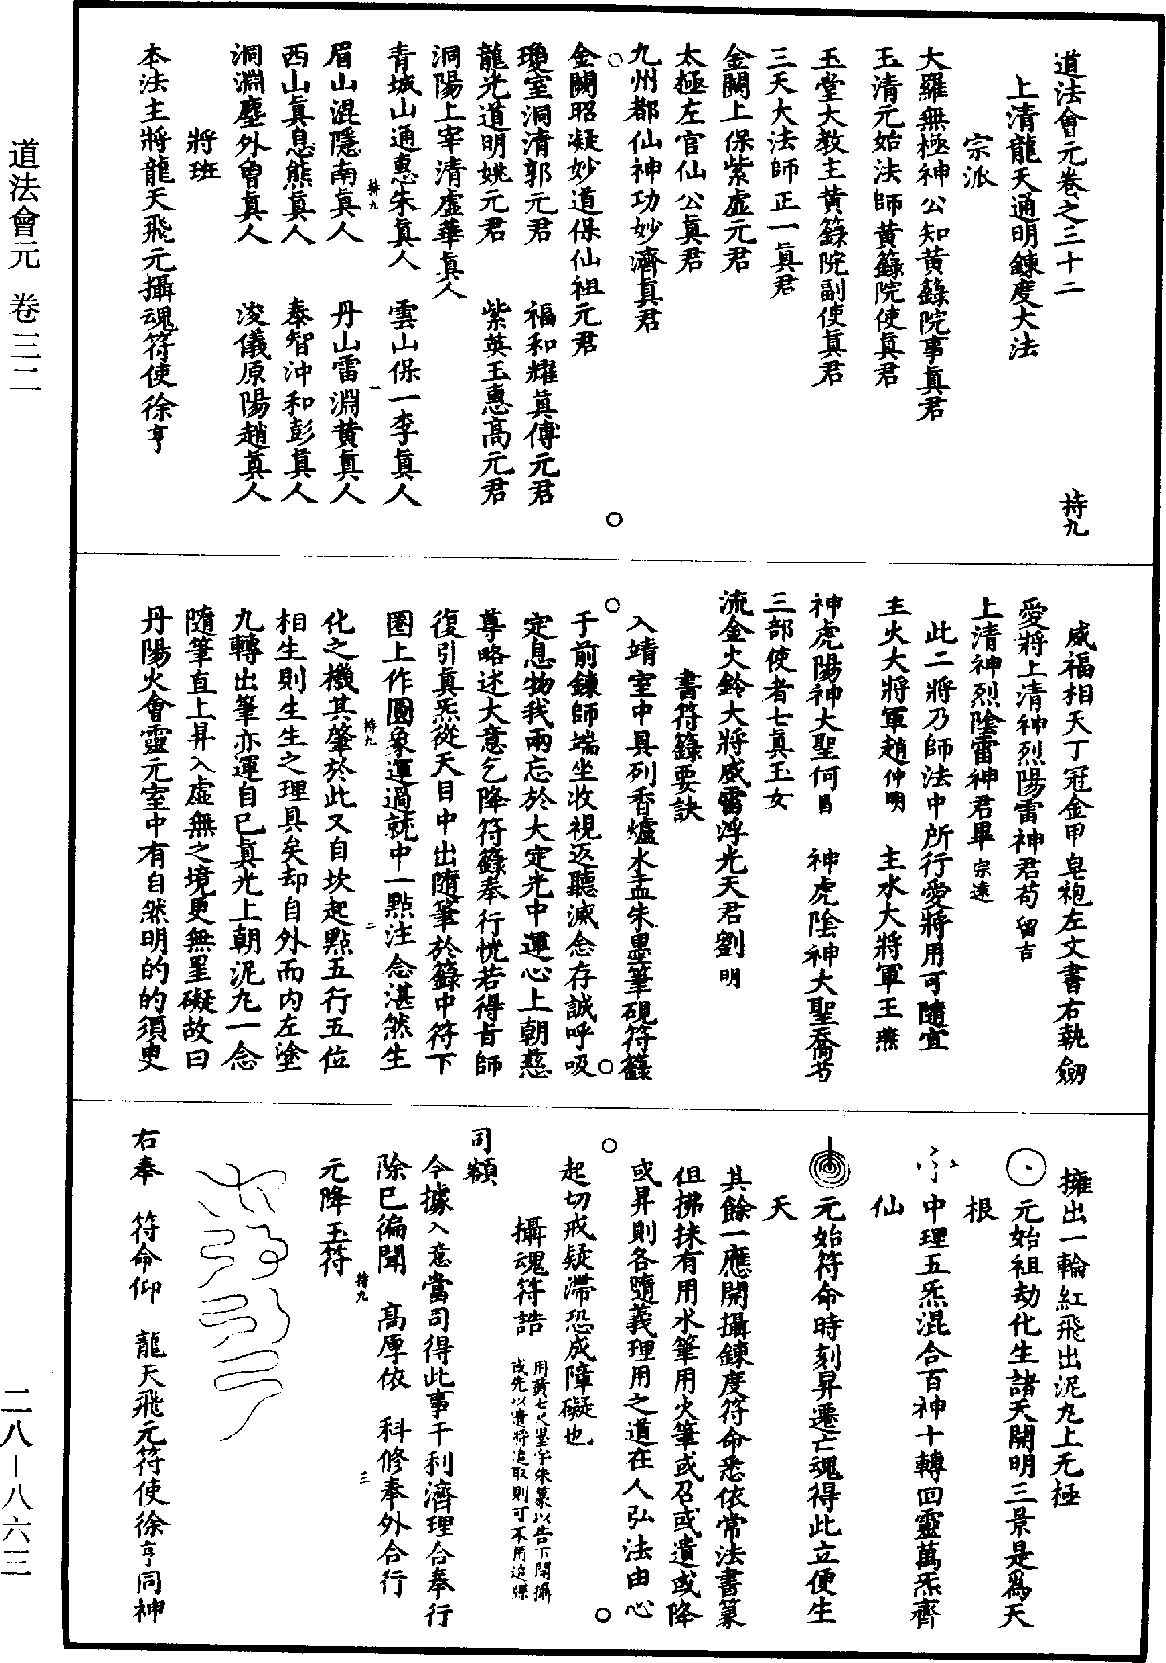 道法會元卷之三十二　持九
上清龍天通明鍊度大法
宗派
大羅無極神公知黃籙院事眞君
玉清元始法師黃籙院使眞君
玉堂大教主黃籙院副使眞君
三天大法師正一眞君
金闕上保紫虛元君
太極左官仙公眞君
九州都仙神功妙濟眞君
金闕昭凝妙道保仙祖元君
瓊室洞清郭元君　福和耀眞傅元君
龍光道明姚元君　紫英玉惠高元君
洞陽上宰清虛華眞人
青城山通惠朱眞人　雲山保一李眞人
持九　一
眉山混隱南眞人　丹山雷淵黃眞人
西山眞息熊眞人　泰智沖和彭眞人
洞淵塵外曾眞人　浚儀原陽趙眞人
將班
本法主將龍天飛元攝魂符使徐亨
威福相天丁冠金甲皂袍左文書右執劒
愛將上清神烈陽雷神君苟留吉
上清神烈陰雷神君畢宗遠
此二將乃師法中所行愛將用可隨宜
主火大將軍趙仲明　主水大將軍王燕
神虎陽神大聖何昌　神虎陰神大聖喬芍
三部使者七眞玉女
流金火鈴大將威雷浮光天君劉明
書符籙要訣
入靖室中具列香爐水盂朱墨筆硯符籙
于前鍊師端坐收視返聽滅念存誠呼吸
定息物我兩忘於大定光中運心上朝慈
尊略述大意乞降符籙奉行恍若得旨師
復引眞炁從天目中出隨筆於籙中符下
圈上作圓象運過就中一點注念湛然生
持九　二
化之機其肇於此又自坎起點五行五位
相生則生生之理具矣却自外而內左塗
九轉出筆亦運自已眞光上朝泥丸一念
隨筆直上昇入虛無之境更無罣礙故曰
丹陽火會靈元室中有自然明的的須更
擁出一輪紅飛出泥丸上无極
元始祖劫化生諸天開明三景是爲天
根
中理五炁混合百神十轉回靈萬炁齊
仙
元始符命時刻昇遷亡魂得此立便生
天
其餘一應開攝鍊度符命悉依常法書篆
但拂抹有用水筆用火筆或召或遣或降
或昇則各隨義理用之道在人弘法由心
起切戒疑滯恐成障礙也
攝魂符誥　用黃七尺墨字朱篆以告下開攝
或先以黃將追取則可不用追牒
司額
今據入意當司得此事干利濟理合奉行
除已徧聞　高厚依　科修奉外合行
持九　三
元降玉符
右奉　符命仰　龍天飛元符使徐亨同神
道法會元　卷三二
二八－八六三